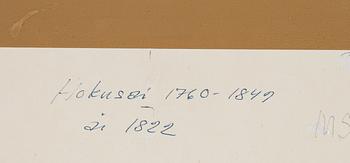 Hokusai 1760-1849
år 1822
MS